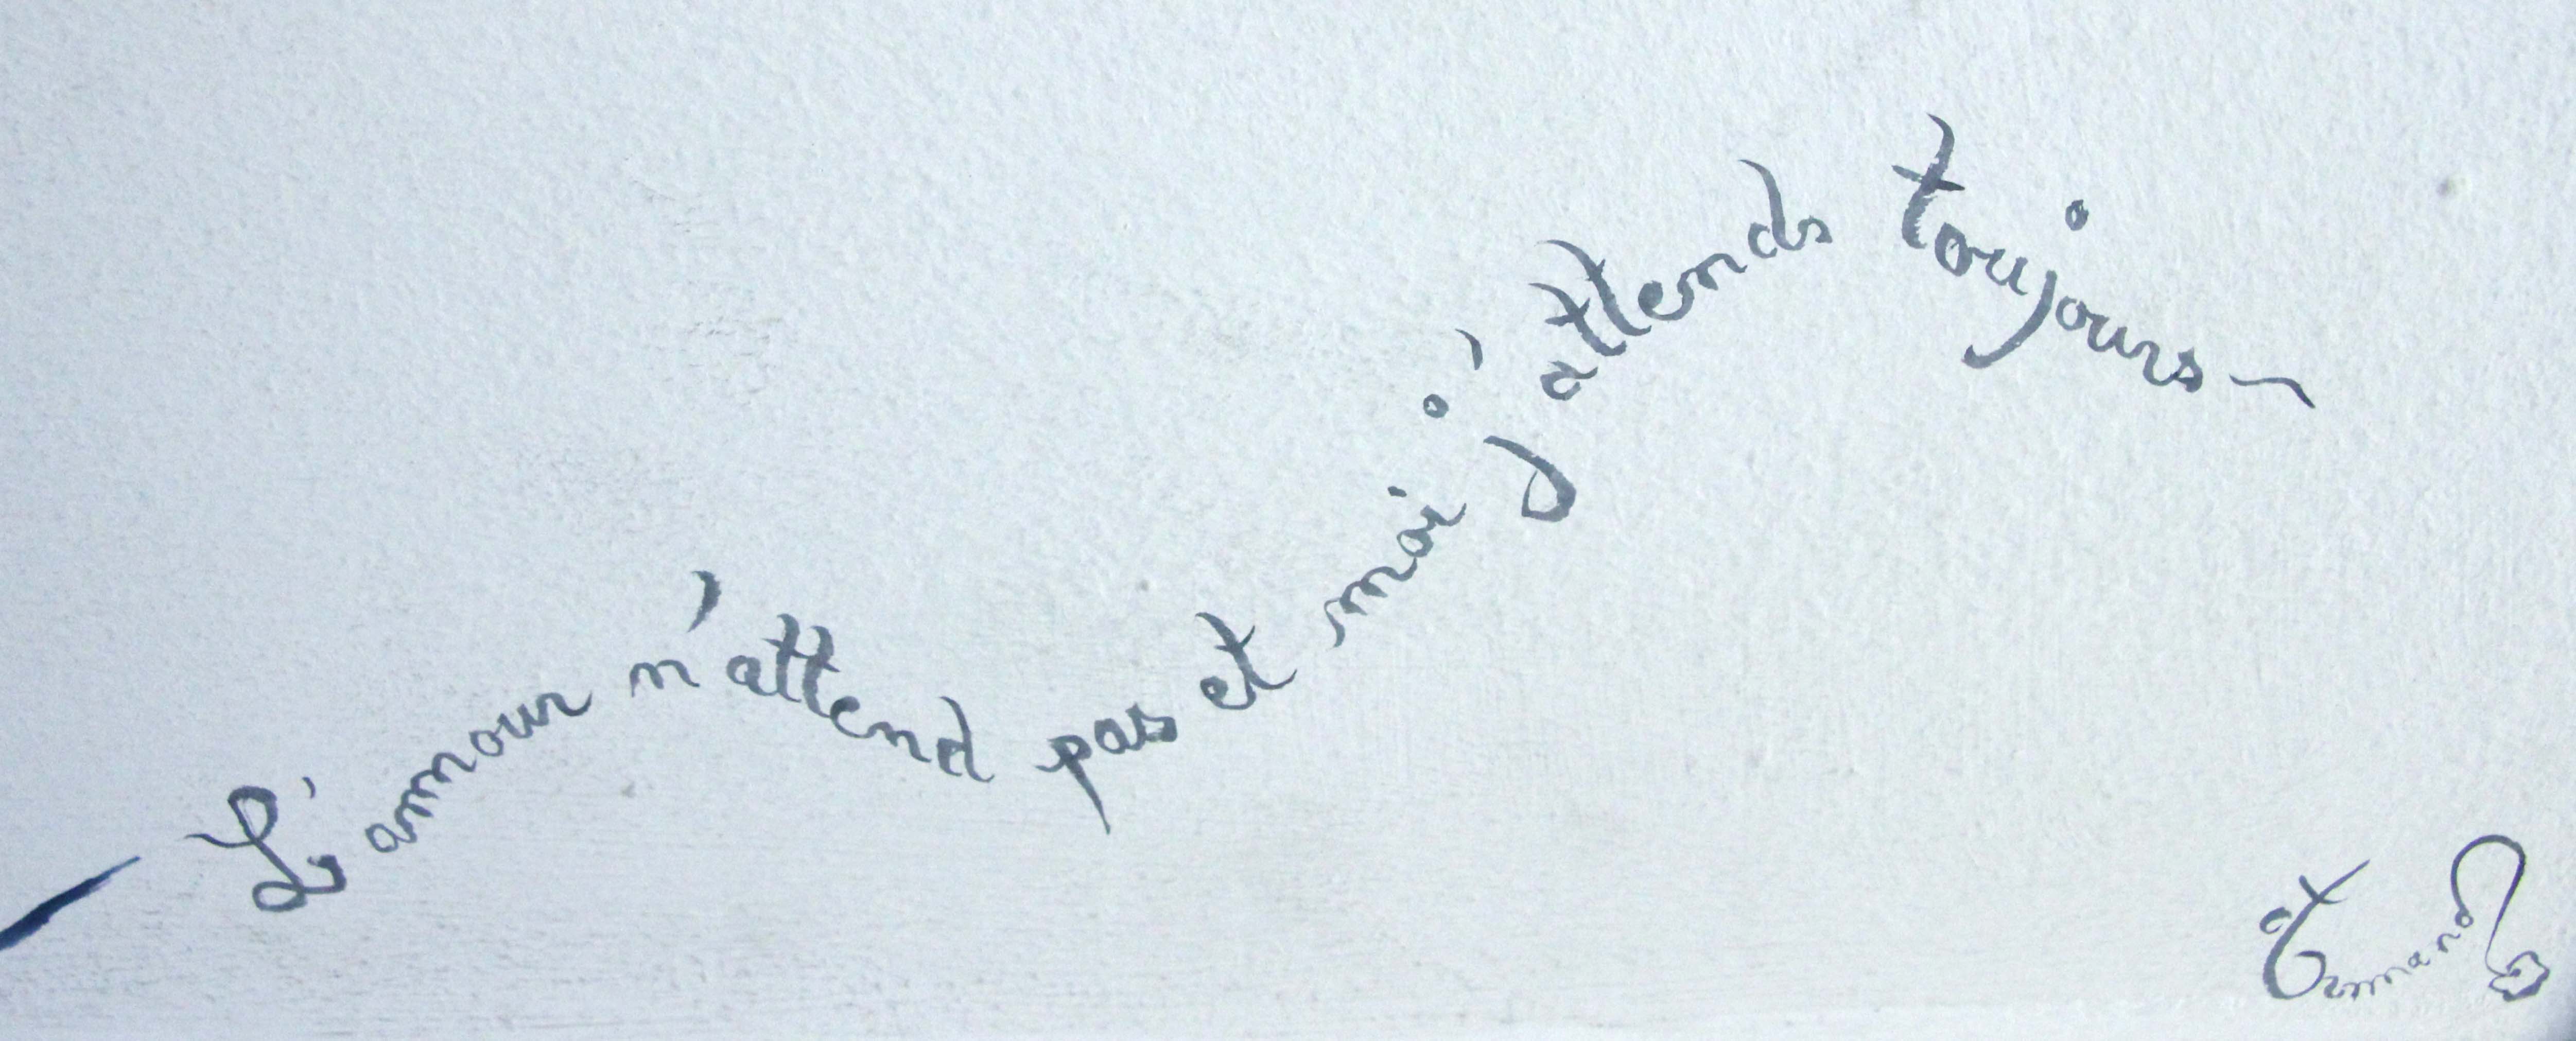 — L'amour n'attend pas et moi j'attends toujours ~